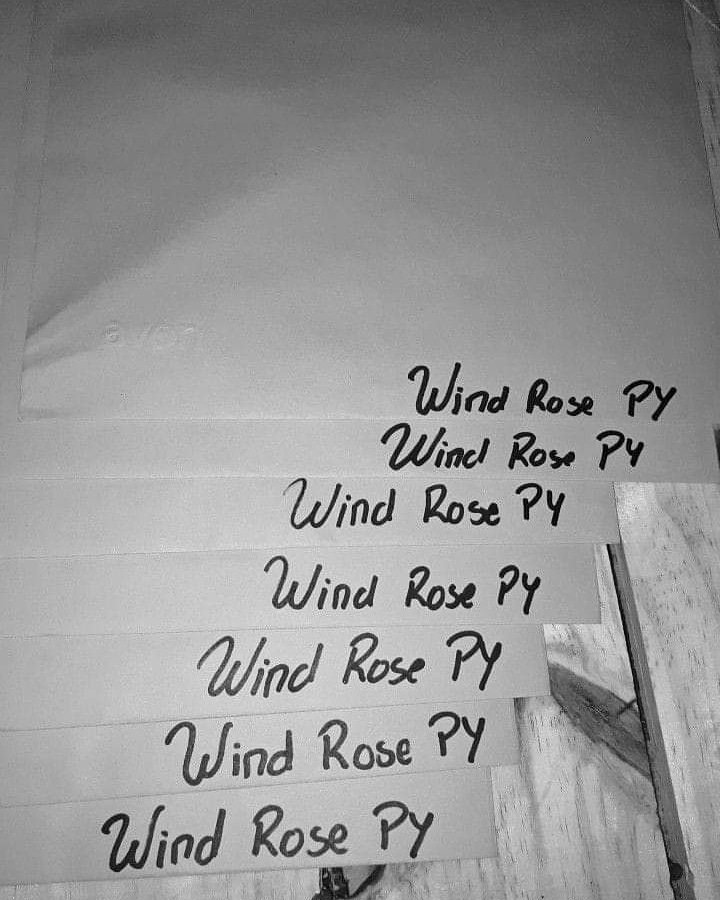 Wind Rose PY
Wind Rose PY
Wind Rose PY
Wind Rose PY
Wind Rose PY
Wind Rose PY
Wind Rose PY